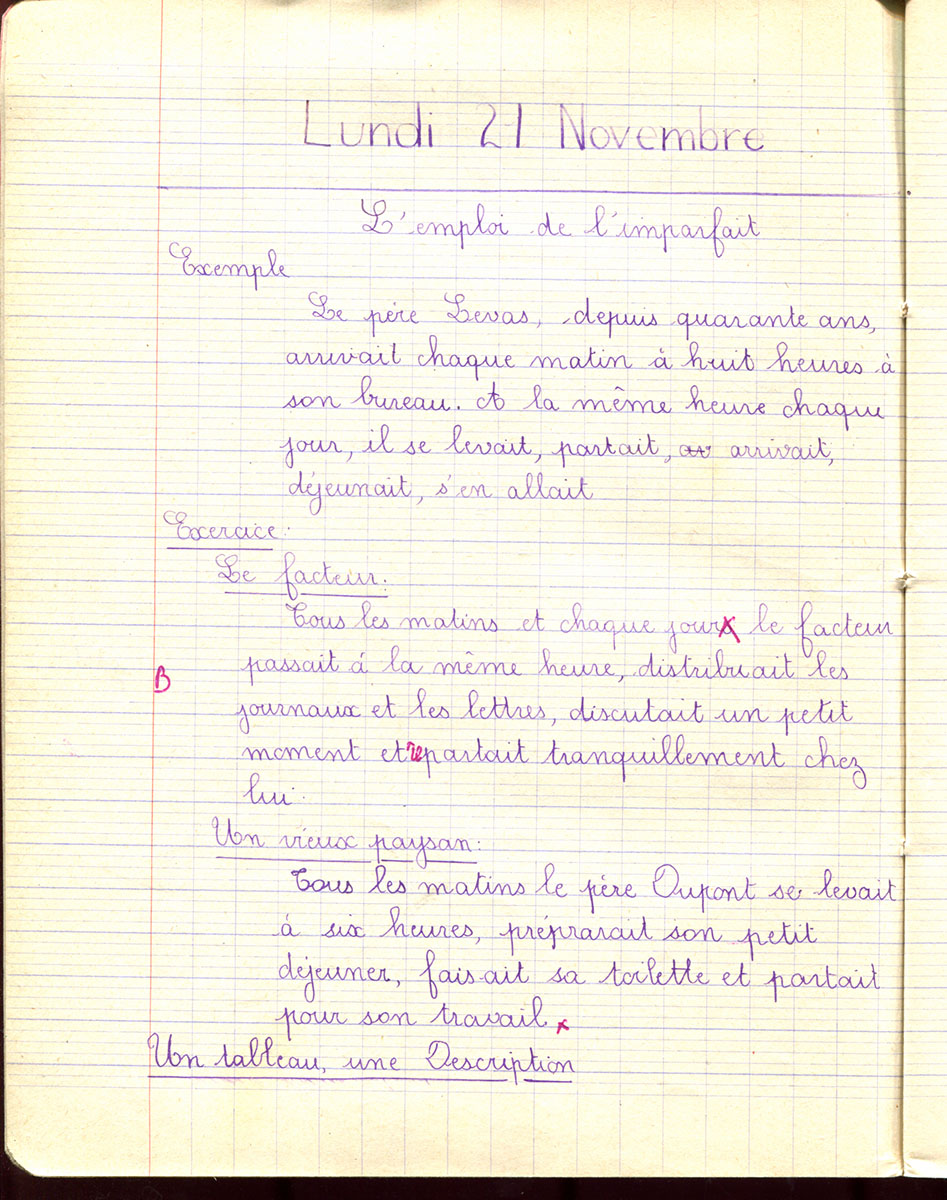 Lundi 21 Novembre
L'emploi de l'imparfait
Exemple
Le père Levas, depuis quarante ans,
arrivait chaque matin à huit heures à
son bureau. A la même heure chaque
jour, il se levait, partait, ar arrivait,
déjeunait, s'en allait
Exercice:
Le facteur.
Tous les matins et chaque jours le facteur
passait á la même heure, distribuait les
B
journaux et les lettres, discutait un petit
moment et repartait tranquillement chez
lui.
Un vieux paysan:
Tous les matins le père Dupont se levait
à six heures, préprarait son petit
déjeuner, faisait sa toilette et partait
pour son travail x
Un tableau, une Description